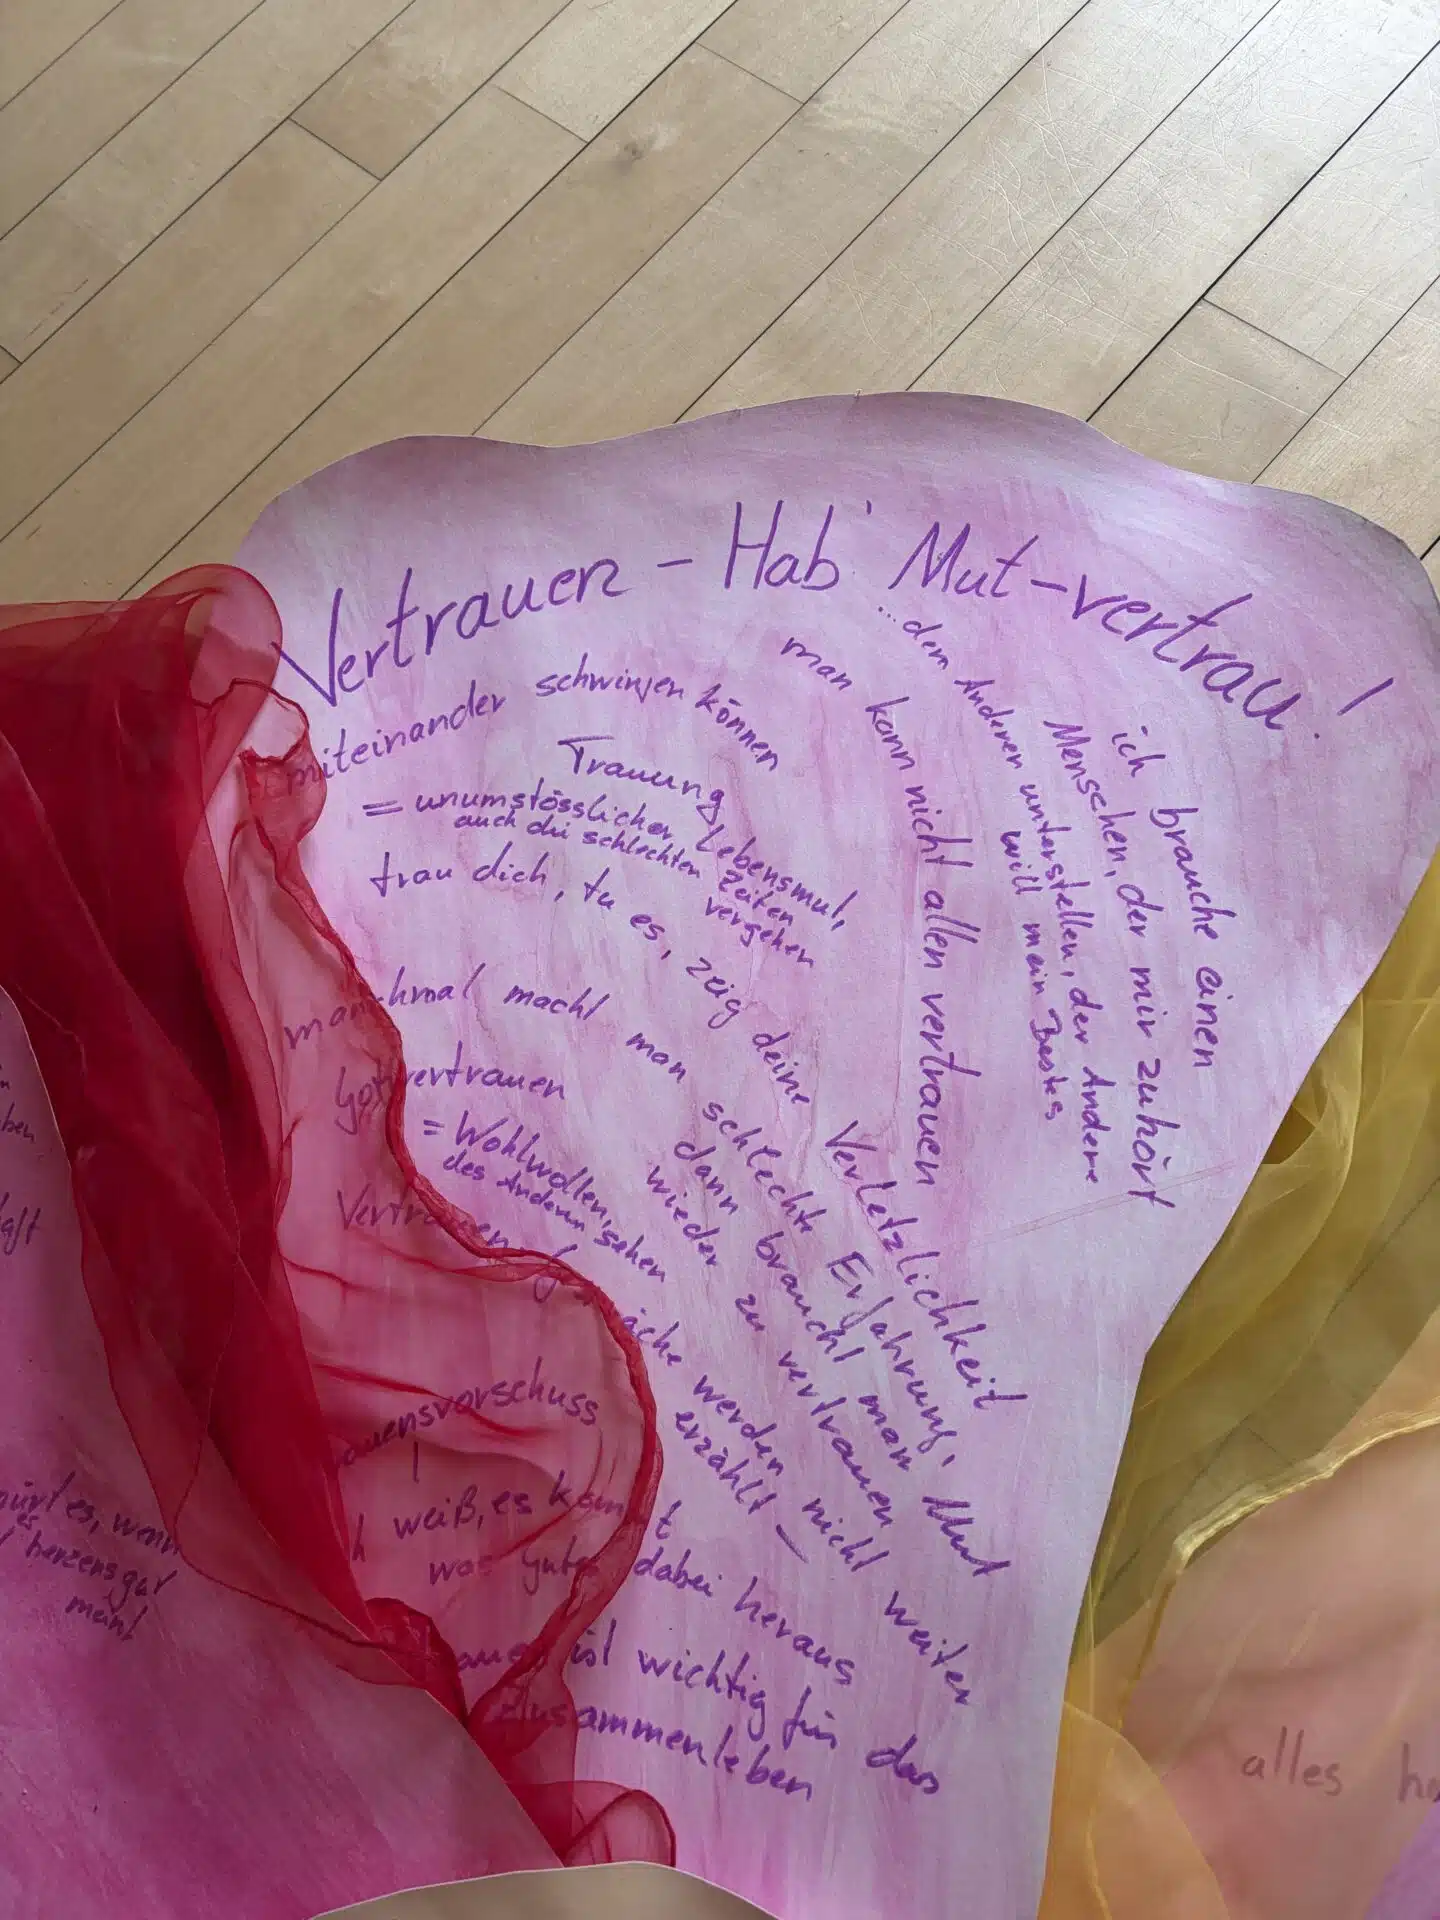 Vertrauen – Hab' Mut-vertrau!
miteinander schwingen können
Trauung
= unumstösslicher Lebensmut,
auch die schlechten Zeiten
vergehen
trau dich, tu es, zeig deine Verletzlichkeit
manchmal macht man schlechte Erfahrung,
dann braucht man Mut
wieder zu vertrauen
Gottvertrauen
= Wohlwollen,
des Anderen sehen
Vertrauensgespräche werden nicht weiter
erzählt –
auensvorschuss
h weiß, es kommt
was Gutes dabei heraus
auen ist wichtig für das
Zusammenleben
man kann nicht allen vertrauen
...dem Anderen unterstellen, der Andere
will mein Bestes
ich brauche einen
Menschen, der mir zuhört
ben
aft
ürt es, wenn
es
herzensgut
meint
alles